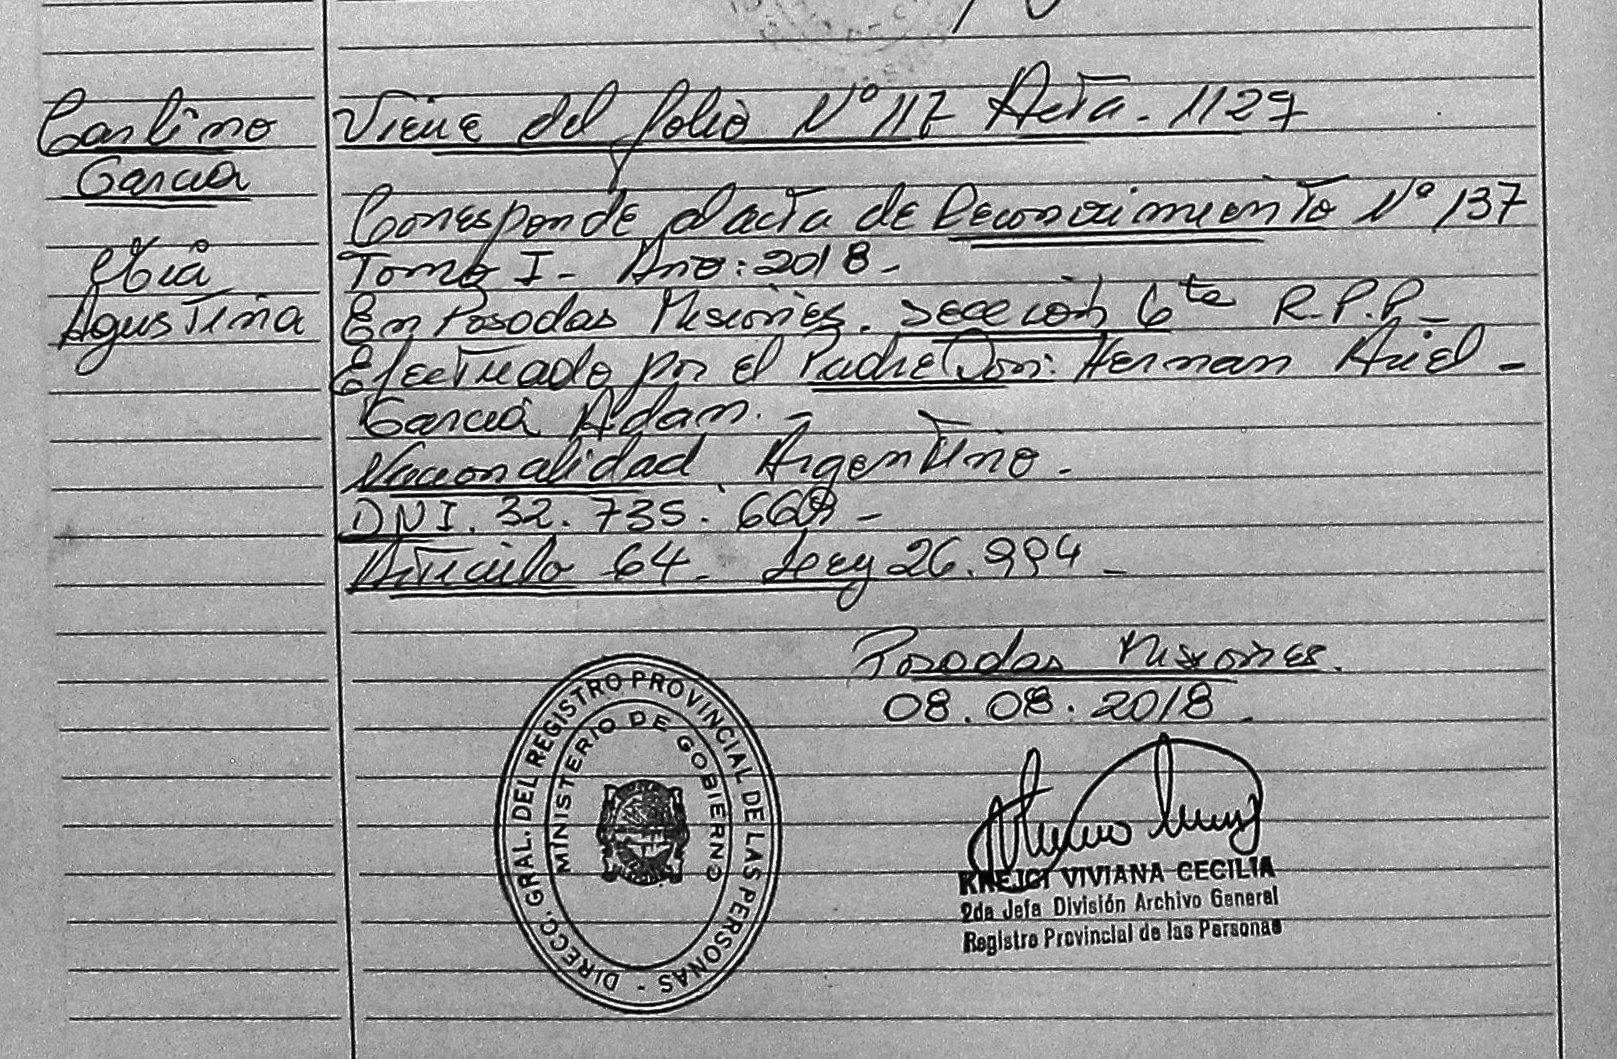 Carlino
García
Mía
Agustina
Viene del folio Nº 117 Acta. 1127
Corresponde al acta de Reconocimiento Nº 137
Tomo I - Año: 2018 -
En Posadas Misiones. Sección 6ta R.P.P -
Efectuado por el Padre Don: Hernan Ariel -
García Adam. -
Nacionalidad Argentino -
DNI. 32. 735.
Artículo 64. Ley 26.994 -
Posadas Misiones.
08.08.2018.
DIRECC. GRAL. DEL REGISTRO PROVINCIAL DE LAS PERSONAS -
MINISTERIO DE GOBIERNO
KREJCI VIVIANA CECILIA
2da Jefa División Archivo General
Registro Provincial de las Personas